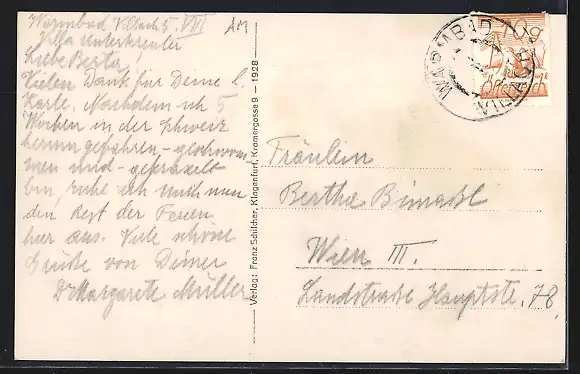 Warmbad Villach 5. VIII
Villa Unterkreuter
Liebe Berta!
Vielen Dank für Deine l.
Karte. Nachdem ich 5
Wochen in der Schweiz
herumgefahren - geschwom-
men und - gekraxelt
bin, ruhe ich mich nun
den Rest der Ferien
hier aus. Viele schöne
Grüße von Deiner
Dr Margarete Müller
AM
Verlag: Franz Schilcher, Klagenfurt, Kramergasse 9 — 1928
WARMBAD VILLACH
10 g
Fräulein
Bertha
Wien III.
Landstraße Hauptstr. 78